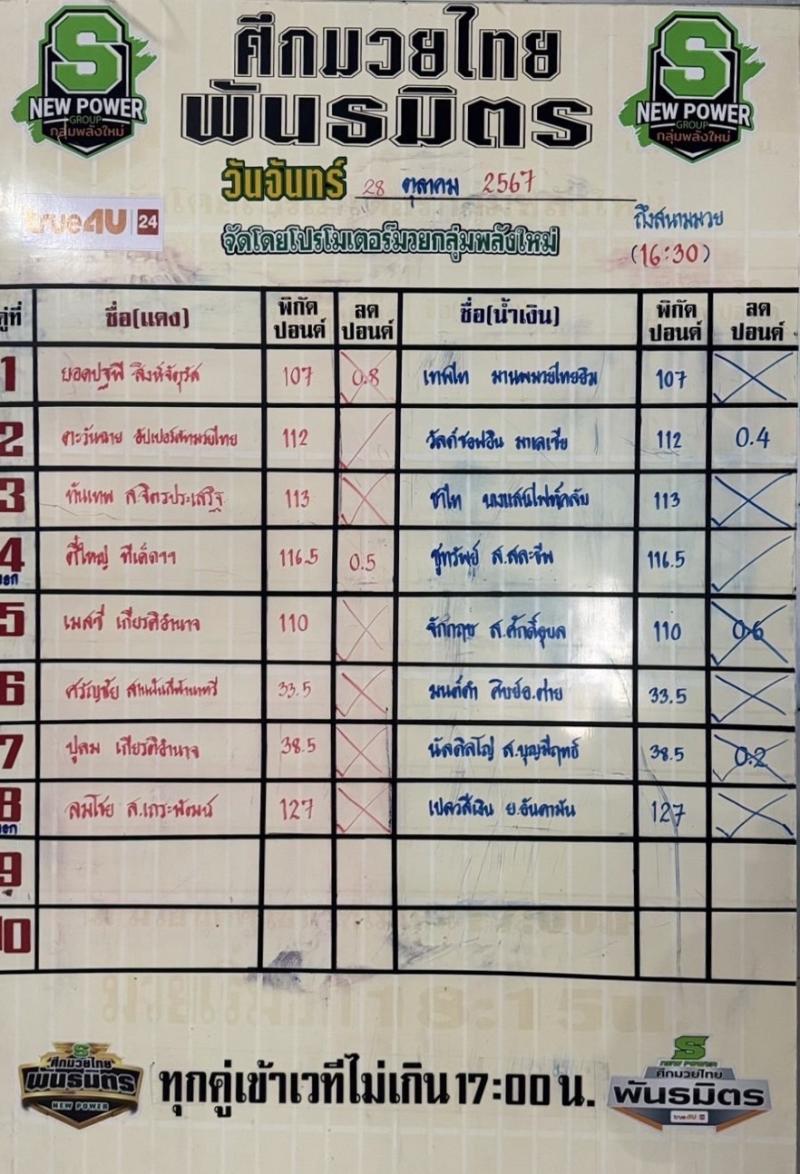 ศึกมวยไทย
พันธมิตร
S NEW POWER GROUP กลุ่มพลังใหม่
S NEW POWER GROUP กลุ่มพลังใหม่
วันจันทร์ 28 ตุลาคม 2567
true4U 24
ถึงสนามมวย
(16:30)
จัดโดยโปรโมเตอร์มวยกลุ่มพลังใหม่
คู่ที่ ชื่อ(แดง) พิกัดปอนด์ ลดปอนด์ ชื่อ(น้ำเงิน) พิกัดปอนด์ ลดปอนด์
1 ยอดปฐพี สิงห์จัตุรัส 107 0.8 เทพไท 107
2 ตะวันฉาย 112 มาเลเซีย 112 0.4
3 ทันเทพ ส.จิตรประเสริฐ 113 ชาไท 113
4 ตี๋ใหญ่ ทีเด็ดฯ 116.5 0.5 ชูทรัพย์ ส.สละชีพ 116.5
5 เมสซี่ เกียรติอำนาจ 110 จักกฤช ส.ศักดิ์อุบล 110 0.6
6 ศรัญชัย 33.5 มนต์ดำ ศิษย์อ.ต่าย 33.5
7 ปูลม เกียรติอำนาจ 38.5 ส.บุญมีฤทธิ์ 38.5 0.2
8 ลมโชย 127 เปลวสีเงิน ย.อันดามัน 127
9
10
ศึกมวยไทย
พันธมิตร
NEW POWER
ทุกคู่เข้าเวทีไม่เกิน 17:00 น.
S NEW POWER
ศึกมวยไทย
พันธมิตร
true4U